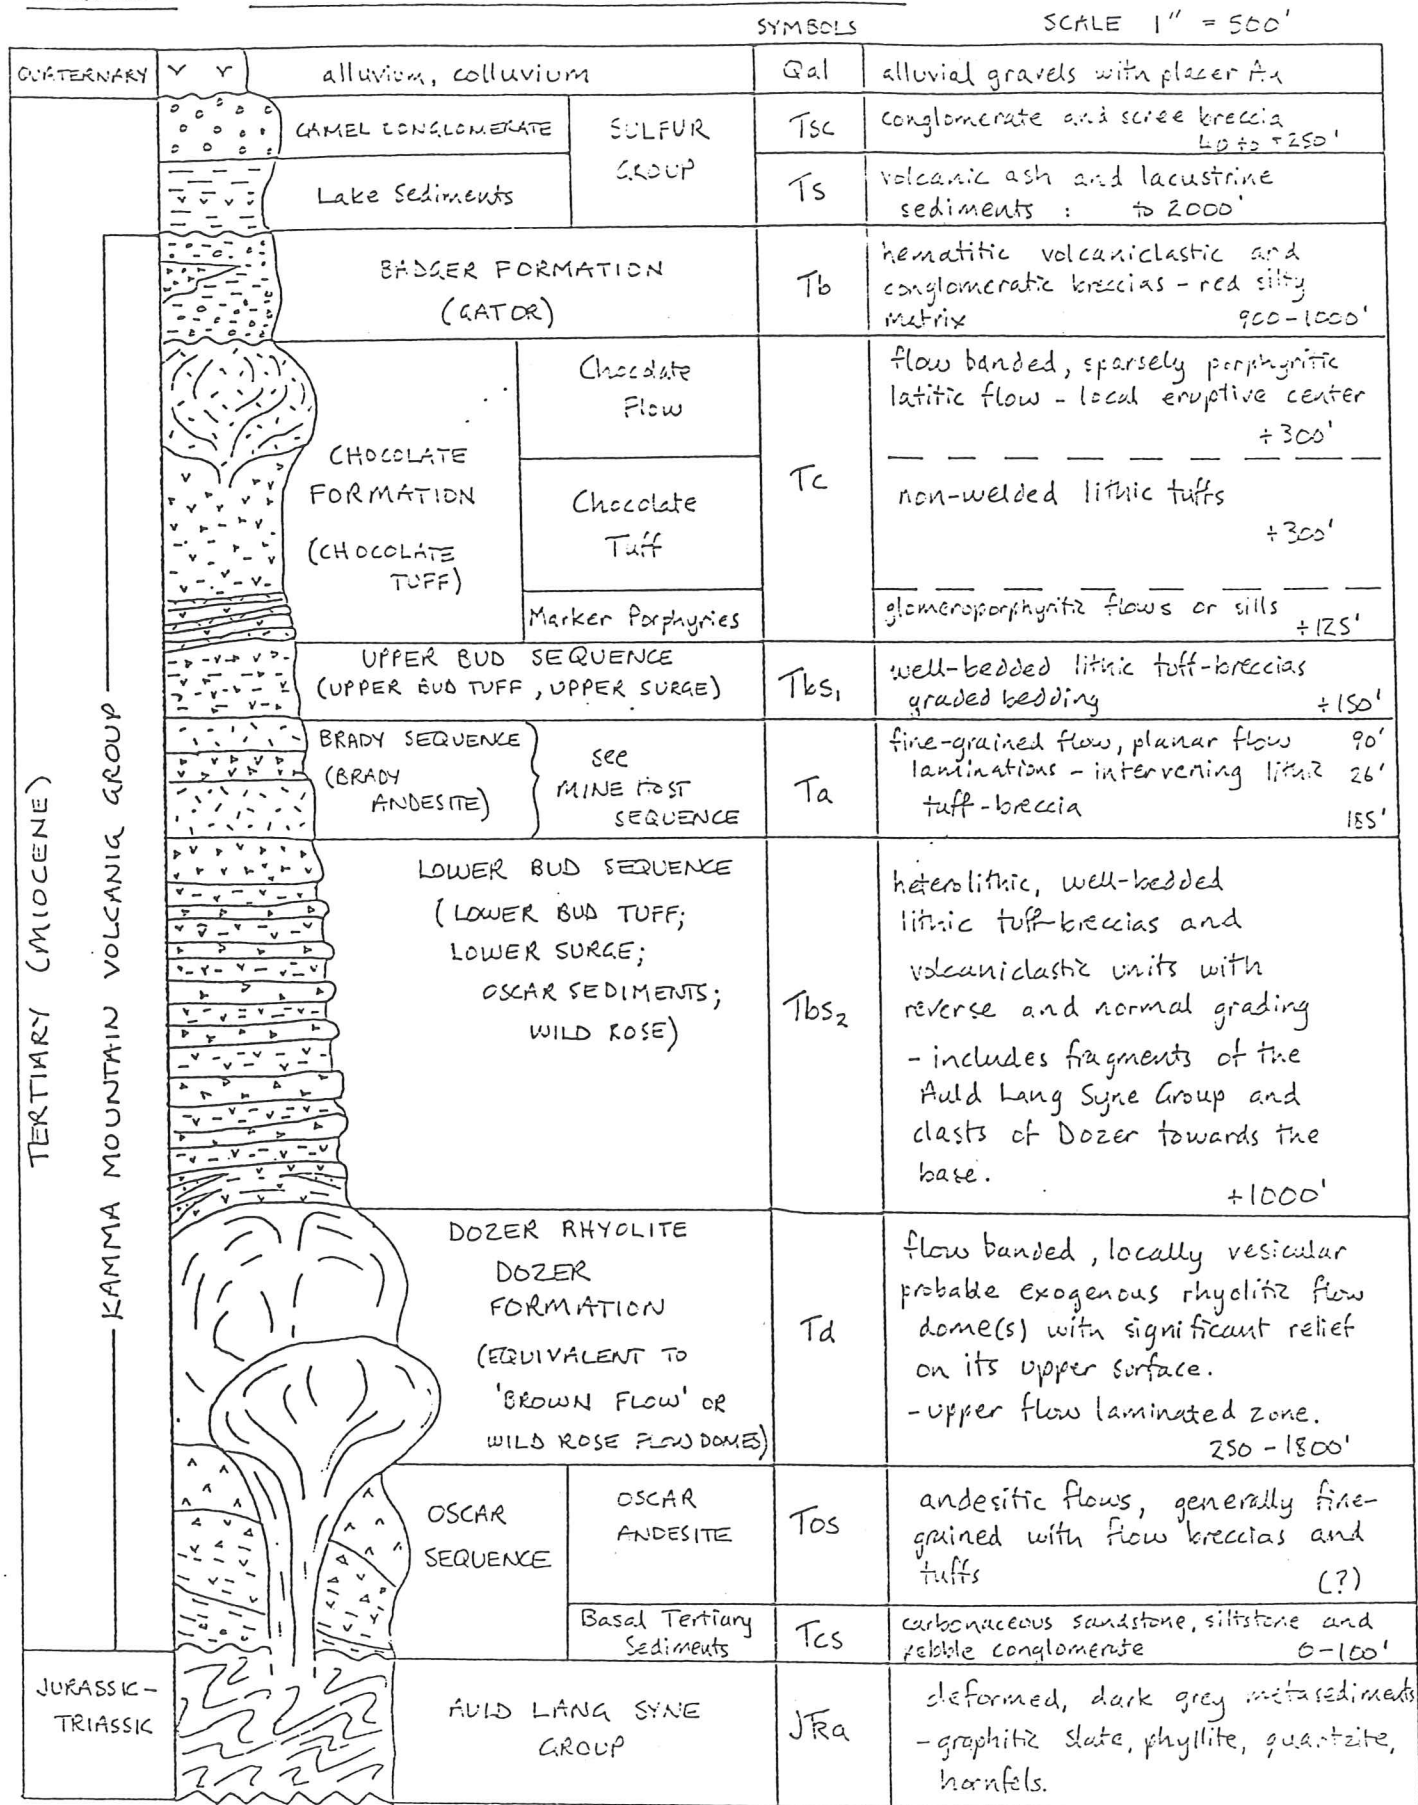 SYMBOLS SCALE 1" = 500'
QUATERNARY alluvium, colluvium Qal alluvial gravels with placer Au
CAMEL CONGLOMERATE SULFUR GROUP Tsc conglomerate and scree breccia
250'
Lake Sediments Ts volcanic ash and lacustrine
sediments : to 2000'
TERTIARY (MIOCENE)
KAMMA MOUNTAIN VOLCANIC GROUP
BADGER FORMATION
(GATOR)
Tb
hematitic volcaniclastic and
conglomeratic breccias - red silty
matrix 900-1000'
CHOCOLATE
FORMATION
(CHOCOLATE
TUFF)
Chocolate
Flow
Tc
flow banded, sparsely porphyritic
latitic flow - local eruptive center
÷300'
Chocolate
Tuff
non-welded lithic tuffs
÷300'
Marker Porphyries
glomeroporphyritic flows or sills
÷125'
UPPER BUD SEQUENCE
(UPPER BUD TUFF, UPPER SURGE)
Tbs₁
well-bedded lithic tuff-breccias
graded bedding ÷150'
BRADY SEQUENCE
(BRADY
ANDESITE)
see
MINE HOST
SEQUENCE
Ta
fine-grained flow, planar flow 90'
laminations - intervening lithic 26'
tuff-breccia 185'
LOWER BUD SEQUENCE
(LOWER BUD TUFF;
LOWER SURGE;
OSCAR SEDIMENTS;
WILD ROSE)
Tbs₂
heterolithic, well-bedded
lithic tuff-breccias and
volcaniclastic units with
reverse and normal grading
- includes fragments of the
Auld Lang Syne Group and
clasts of Dozer towards the
base.
÷1000'
DOZER RHYOLITE
DOZER
FORMATION
(EQUIVALENT TO
'BROWN FLOW' OR
WILD ROSE FLOW DOMES)
Td
flow banded, locally vesicular
probable exogenous rhyolitic flow
dome(s) with significant relief
on its upper surface.
- upper flow laminated zone.
250 - 1800'
OSCAR
SEQUENCE
OSCAR
ANDESITE
Tos
andesitic flows, generally fine-
grained with flow breccias and
tuffs (?)
Basal Tertiary
Sediments
Tcs
carbonaceous sandstone, siltstone and
pebble conglomerate 0-100'
JURASSIC-
TRIASSIC
AULD LANG SYNE
GROUP
JTRa
deformed, dark grey metasediments
- graphitic slate, phyllite, quartzite,
hornfels.